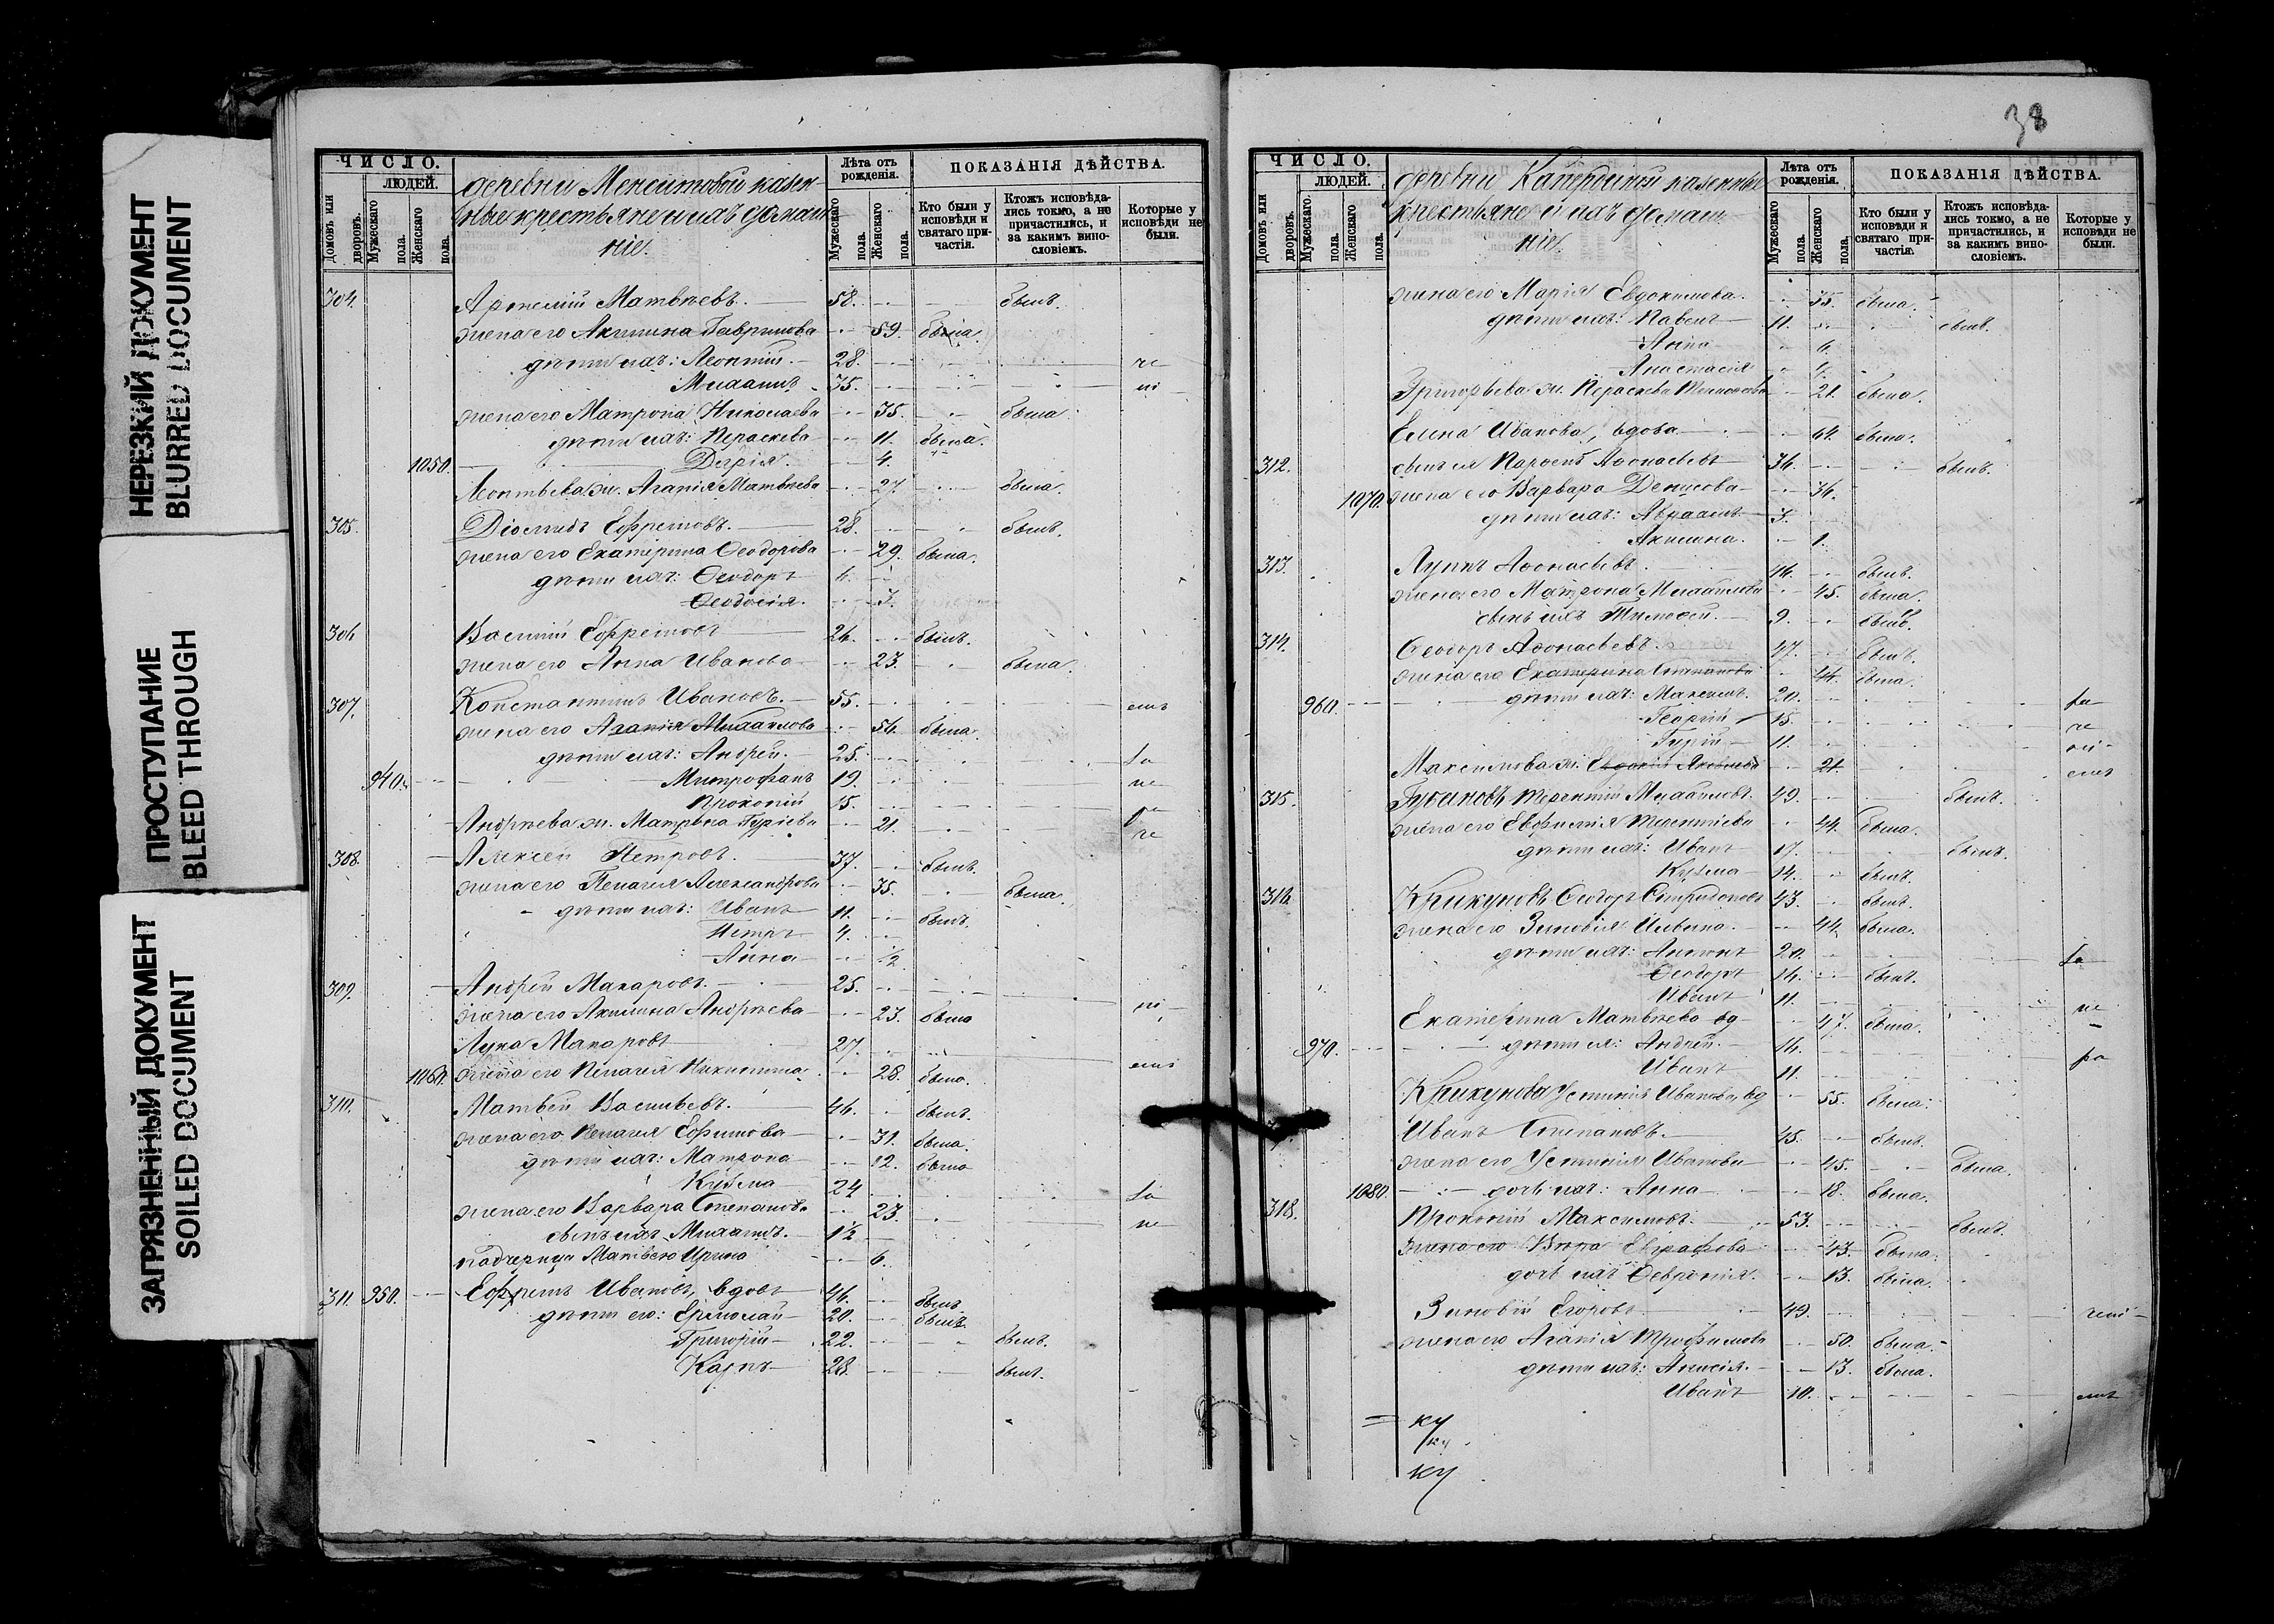 НЕРЕЗКИЙ ДОКУМЕНТ
BLURRED DOCUMENT
ПРОСТУПАНИЕ
BLEED THROUGH
ЗАГРЯЗНЕННЫЙ ДОКУМЕНТ
SOILED DOCUMENT
ЧИСЛО.
ЛЮДЕЙ.
Домовъ или дворовъ.
Мужескаго пола.
Женскаго пола.
деревни казен-
ные крестьяне и ихъ домаш-
ніе.
Лѣта отъ рожденія.
Мужескаго пола.
Женскаго пола.
ПОКАЗАНІЯ ДѢЙСТВА.
Кто были у исповѣди и святаго при-частія.
Ктожъ исповѣда-лись токмо, а не причастились, и за какимъ вино-словіемъ.
Которые у исповѣди не были.
304. Артемій Матвѣевъ. 58. былъ.
жена его Акилина Гаврилова 59. была.
дѣти ихъ: Леонтій. 28. не
Михаилъ 35.
жена его Матрона Николаева 35. была.
дѣти ихъ: Параскева 11. была.
1050. Дарія. 4.
Леонтьева ж. Агапія Матвѣева 27. была.
305. Діомидъ Ефремовъ. 28. былъ.
жена его Екатерина Ѳеодорова 29. была.
дѣти ихъ: Ѳеодоръ
Ѳеодосія. 3.
306 Василій Ефремовъ 26. былъ.
жена его Анна Иванова 23. была.
307. Константинъ Ивановъ. 55.
жена его Агапія Михаилова 56. была.
дѣти ихъ: Андрей. 25.
940. Митрофанъ 19. не
Прокопій 15.
Андреева ж. Матрона Гуріева 21. не
308. Алексѣй Петровъ. 37. былъ.
жена его Пелагея Александрова 35. была.
дѣти ихъ: Иванъ 11. былъ.
Петръ 4.
Анна 1/2
309. Андрей Макаровъ. 25.
жена его Акилина Андреева 23. была
Лука Макаровъ 27.
1060. жена его Пелагея Никитина 28. была.
310. Матвей Васильевъ. 46. былъ.
жена его Пелагея Ефимова 31. была.
дѣти ихъ: Матрона 12. была
Кузьма 24
жена его Варвара Степанова 23. не
сынъ ихъ Михаилъ. 1 1/2
падчерица Матвею Ирина 6.
311. 950. Ефремъ Ивановъ, вдовъ 46. былъ
дѣти его: Ермолай 20. былъ
Григорій 22. былъ.
Карпъ 28. былъ.
38
ЧИСЛО.
ЛЮДЕЙ.
Домовъ или дворовъ.
Мужескаго пола.
Женскаго пола.
деревни казенные
крестьяне и ихъ домаш-
ніе.
Лѣта отъ рожденія.
Мужескаго пола.
Женскаго пола.
ПОКАЗАНІЯ ДѢЙСТВА.
Кто были у исповѣди и святаго при-частія.
Ктожъ исповѣда-лись токмо, а не причастились, и за какимъ вино-словіемъ.
Которые у исповѣди не были.
жена его Марія Евдокимова. 35. была.
дѣти ихъ: Павелъ 11. былъ.
Анна 6.
Анастасія
Григорьева ж. Параскева 21. была.
Елена Иванова, вдова 64. была.
312. сынъ ея Аѳонасьевъ 36. былъ.
1070. жена его Варвара Денисова 36.
дѣти ихъ: Авраамъ 3.
Акилина. 1.
313. Лупъ Аѳонасьевъ 46. былъ.
жена его Матрона Михаилова 45. была.
сынъ ихъ Тимоѳей. 9. былъ.
314. Ѳеодоръ Аѳонасьевъ. 47. былъ.
жена его Екатерина Степанова 44. была.
960. дѣти ихъ: Максимъ. 20.
Георгій 15. не
Гурій 11.
Максимова ж. Евдокія Яковлева 21.
315. Терентій Михаиловъ. 49. былъ.
жена его Евфимія Терентіева 44. была.
дѣти ихъ: Иванъ 17. былъ.
Кузьма 14. былъ.
316. Крикуновъ Ѳеодоръ Спиридоновъ 43. былъ.
жена его Зиновія Ильина. 44. была.
дѣти ихъ: Антонъ 20.
Ѳеодоръ 14. былъ.
Иванъ 11. не
Екатерина Матвѣева вд 47. была.
970. дѣти ея: Андрей. 16.
Иванъ 11.
Крикунова Устинія Иванова, вд 55. была.
Иванъ Степановъ. 45. былъ.
жена его Устинія Иванова 45. была.
1080. дочь ихъ: Анна 18. была.
318. Прокопій Максимовъ. 53. былъ.
жена его Евграфова 43. была.
дочь ихъ Ѳевронія. 13. была.
Зиновій Егоровъ. 49.
жена его Агапія Трофимова 50. была.
дѣти ихъ: Анисія. 13. была.
Иванъ 10.
ку
ку
ку